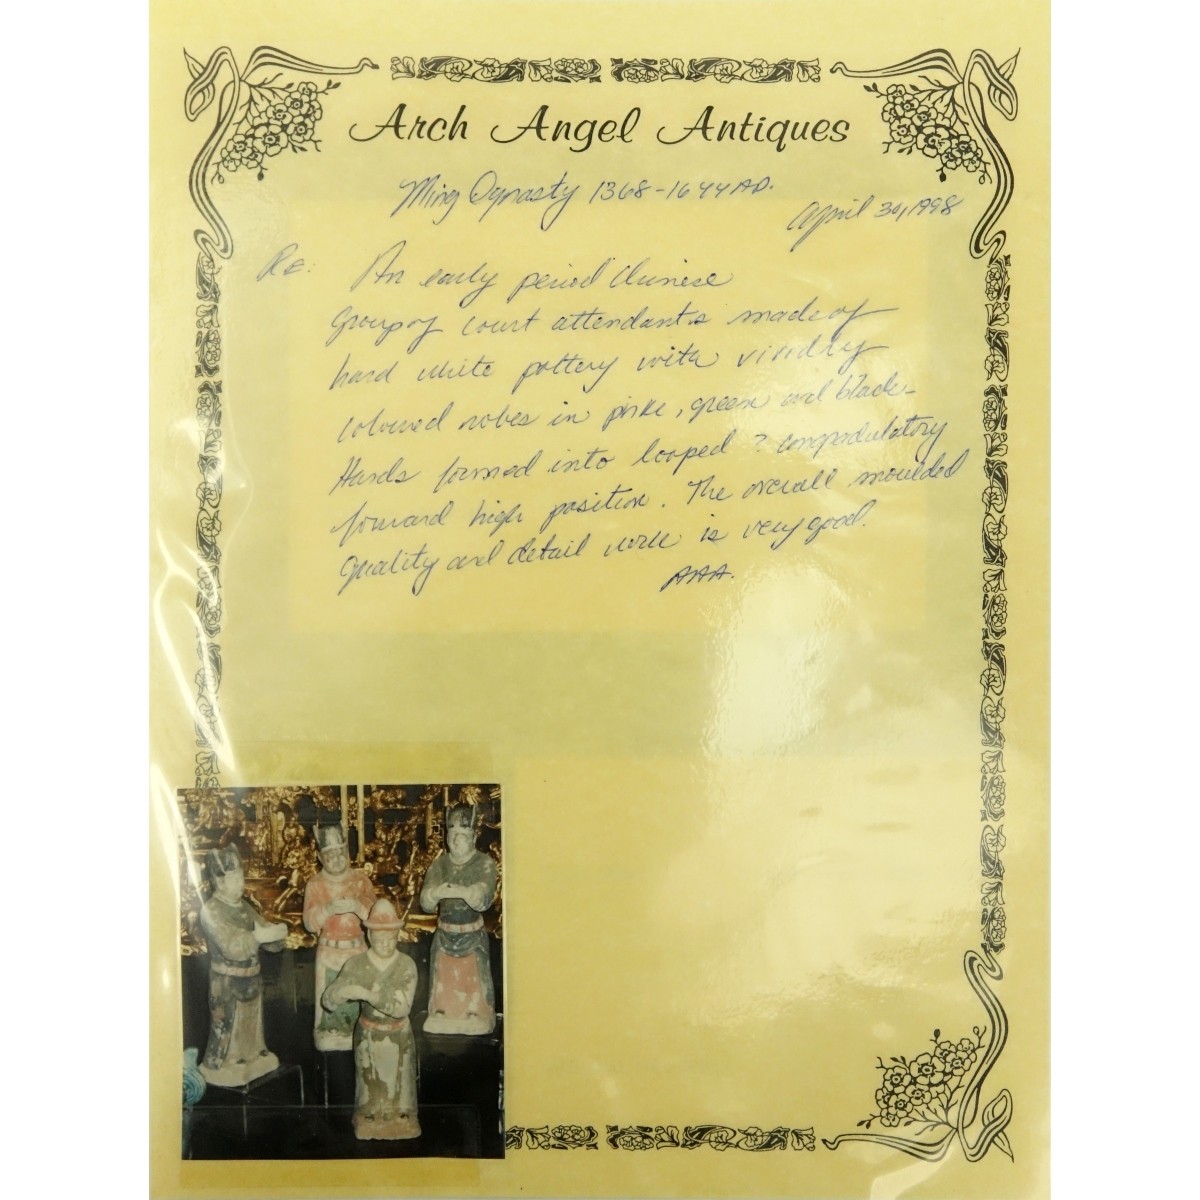 Arch Angel Antiques
Ming Dynasty 1368-1644 AD.
April 30, 1998
Re: An early period Chinese
Group of court attendants made of
hard white pottery with vividly
coloured robes in pink, green and black.
Hands formed into looped & congradulatory
forward high position. The overall moulded
quality and detail work is very good.
AAA.